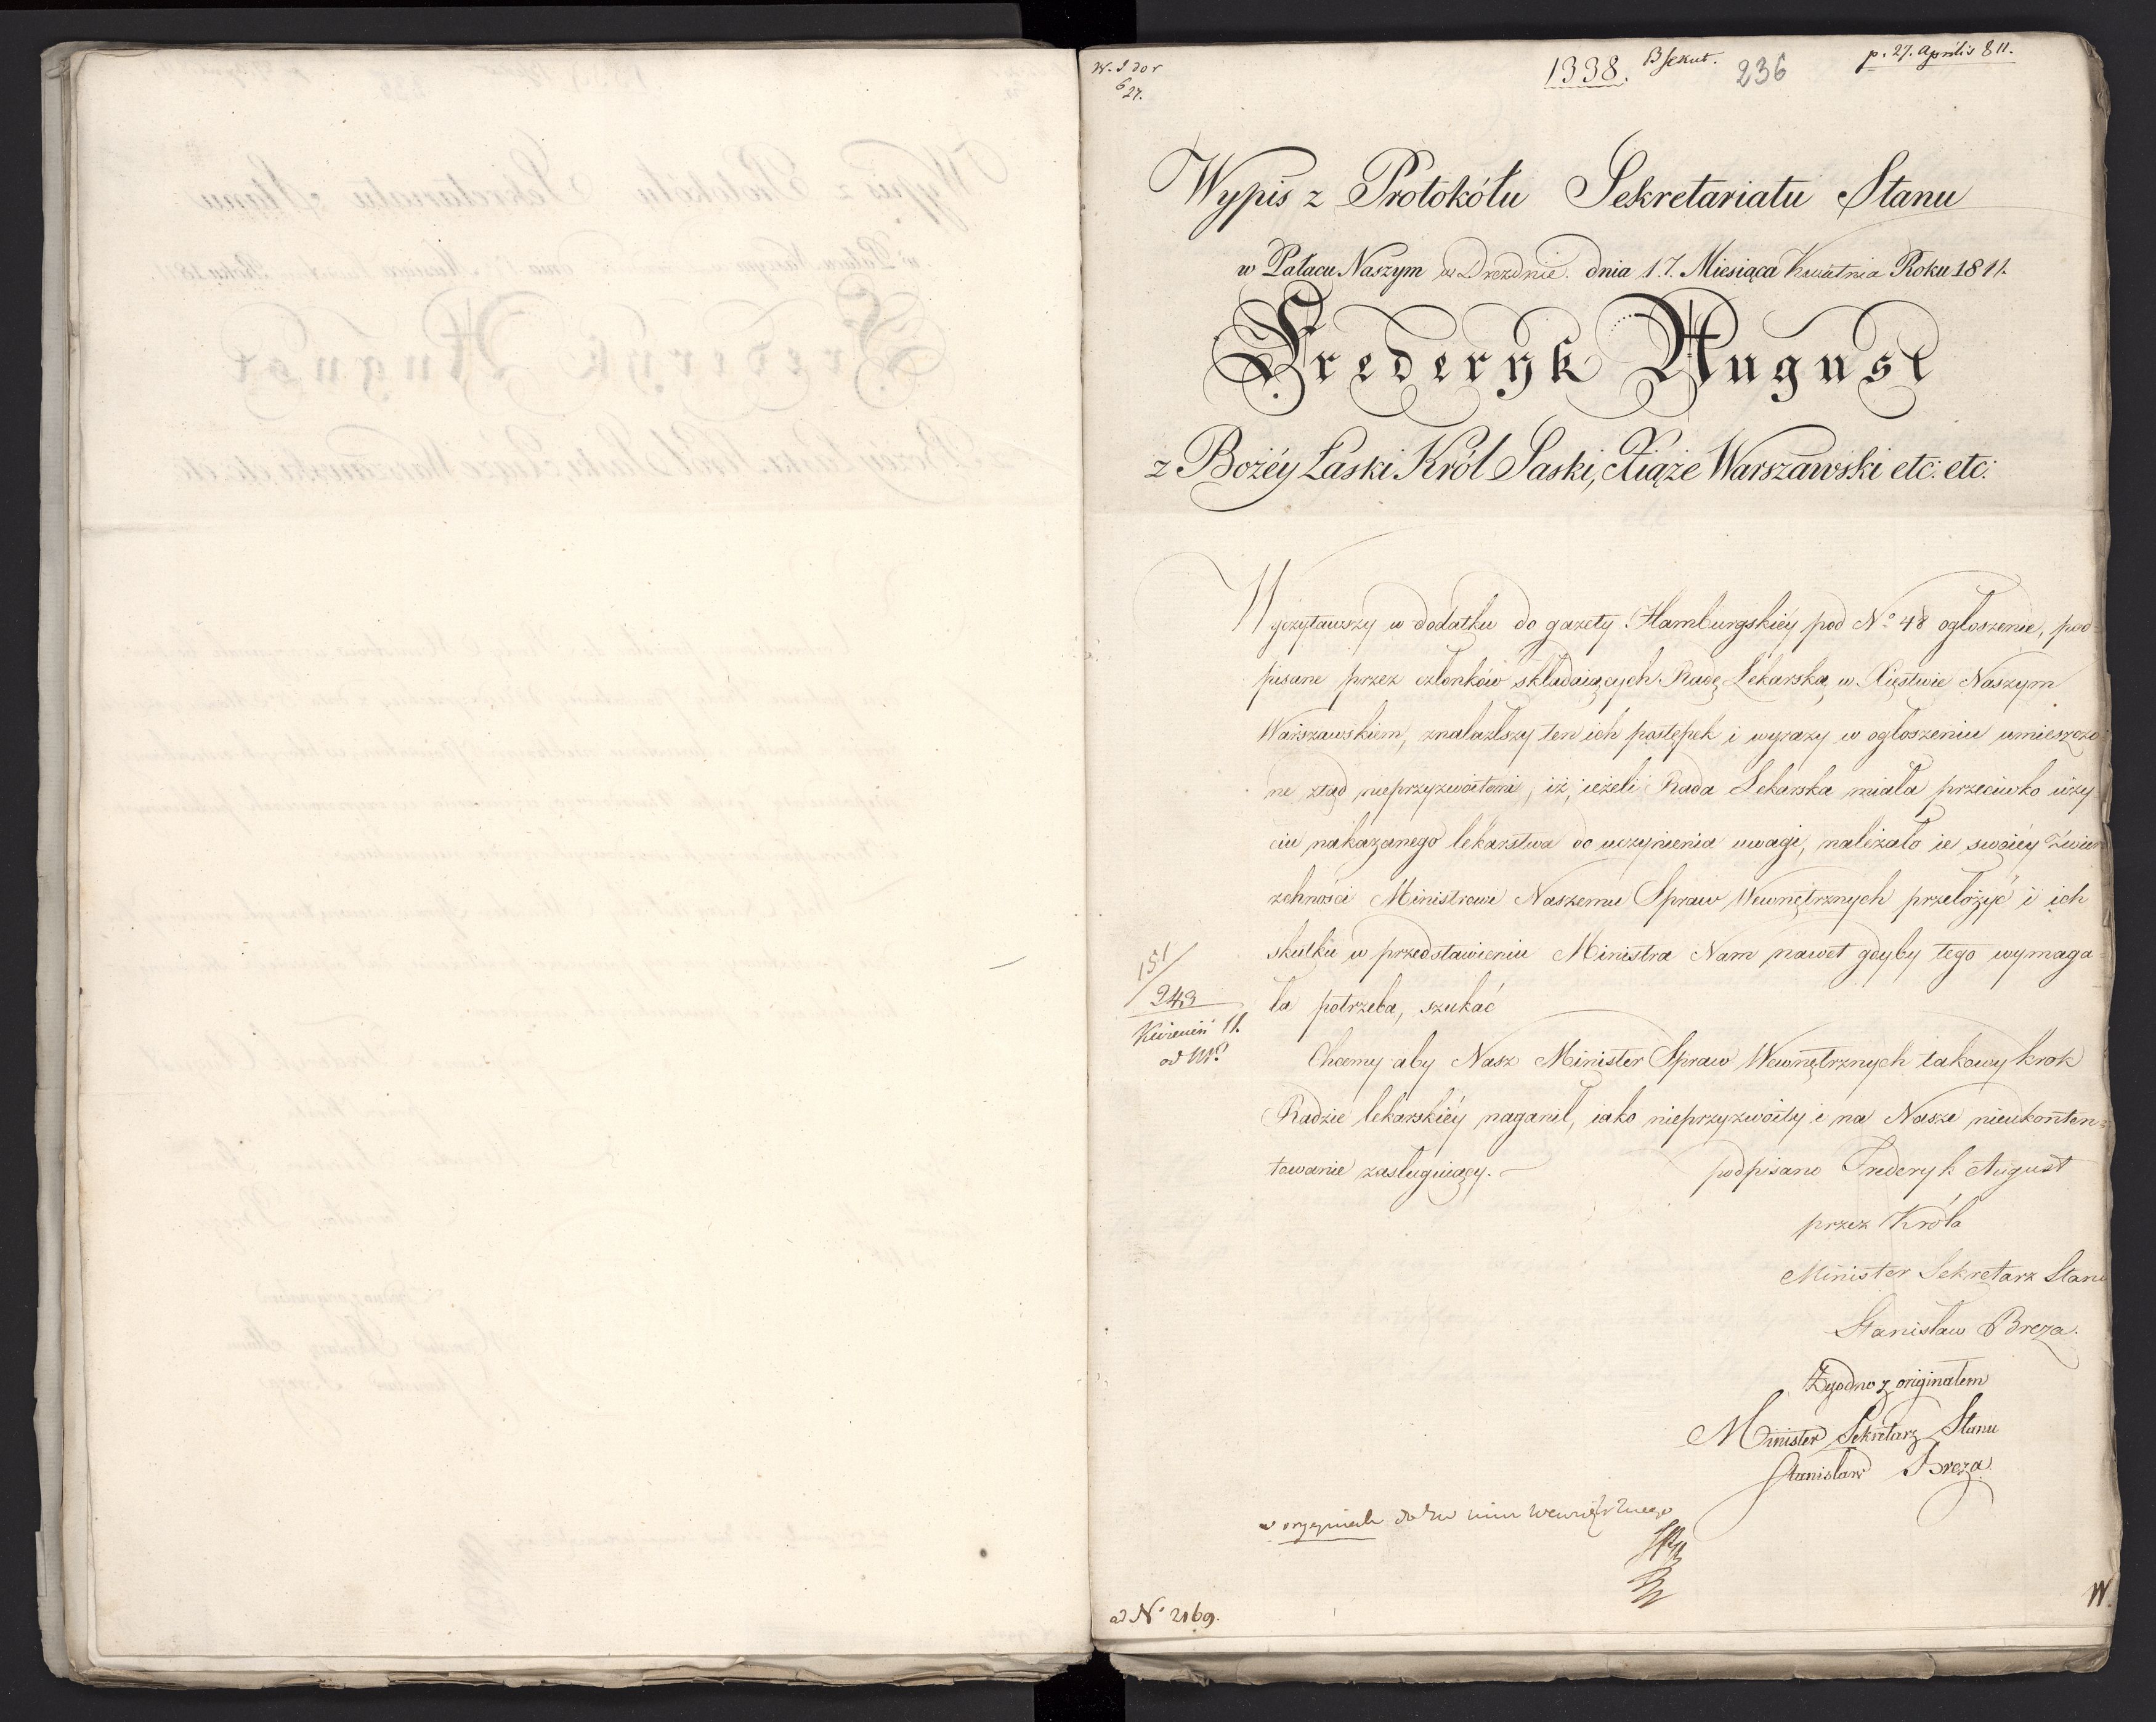 1338. 236 p. 27. Aprilis 811.
6
27.
Wypis z Protokółu Sekretariatu Stanu
w Pałacu Naszym w Dreznie. dnia 17. Miesiąca Kwietnia Roku 1811.
Frederyk August
z Bożéy Łaski Król Saski, Xiąże Warszawski etc: etc:
Wyczytawszy w dodatku do gazety Hamburgskiéy pod No. 48 ogłoszenie, pod=
pisane przez członków składaiących Radę Lékarską w Xięstwie Naszym
Warszawskiem, znalazłszy ten ich postępek i wyrazy w ogłoszeniu umieszczo
ne ztąd nieprzyzwoitemi, iż, ieżeli Rada Lekarska miała przeciwko uży=
ciu nakazanego lékarstwa do uczynienia uwagi, należało ie swoiéy Zwierz
zchności Ministrowi Naszemu Spraw Wewnętrznych przełożyć i ich
skutku w przedstawieniu Ministra Nam nawet gdyby tego wymaga=
ła potrzeba, szukać
151/
243
Kwiecień 11.
Chcemy aby Nasz Minister Spraw Wewnętrznych takowy krok
Radzie lekarskiéy naganił, iako nieprzyzwoity i na Nasze nieukonten=
towanie zasługuiący. podpisano Frederyk August
przez Króla
Minister Sekretarz Stanu
Stanisław Breza.
Zgodno z originałem
Minister Sekretarz Stanu
Stanisław Breza
w oryginale
ad No 2169.
W.